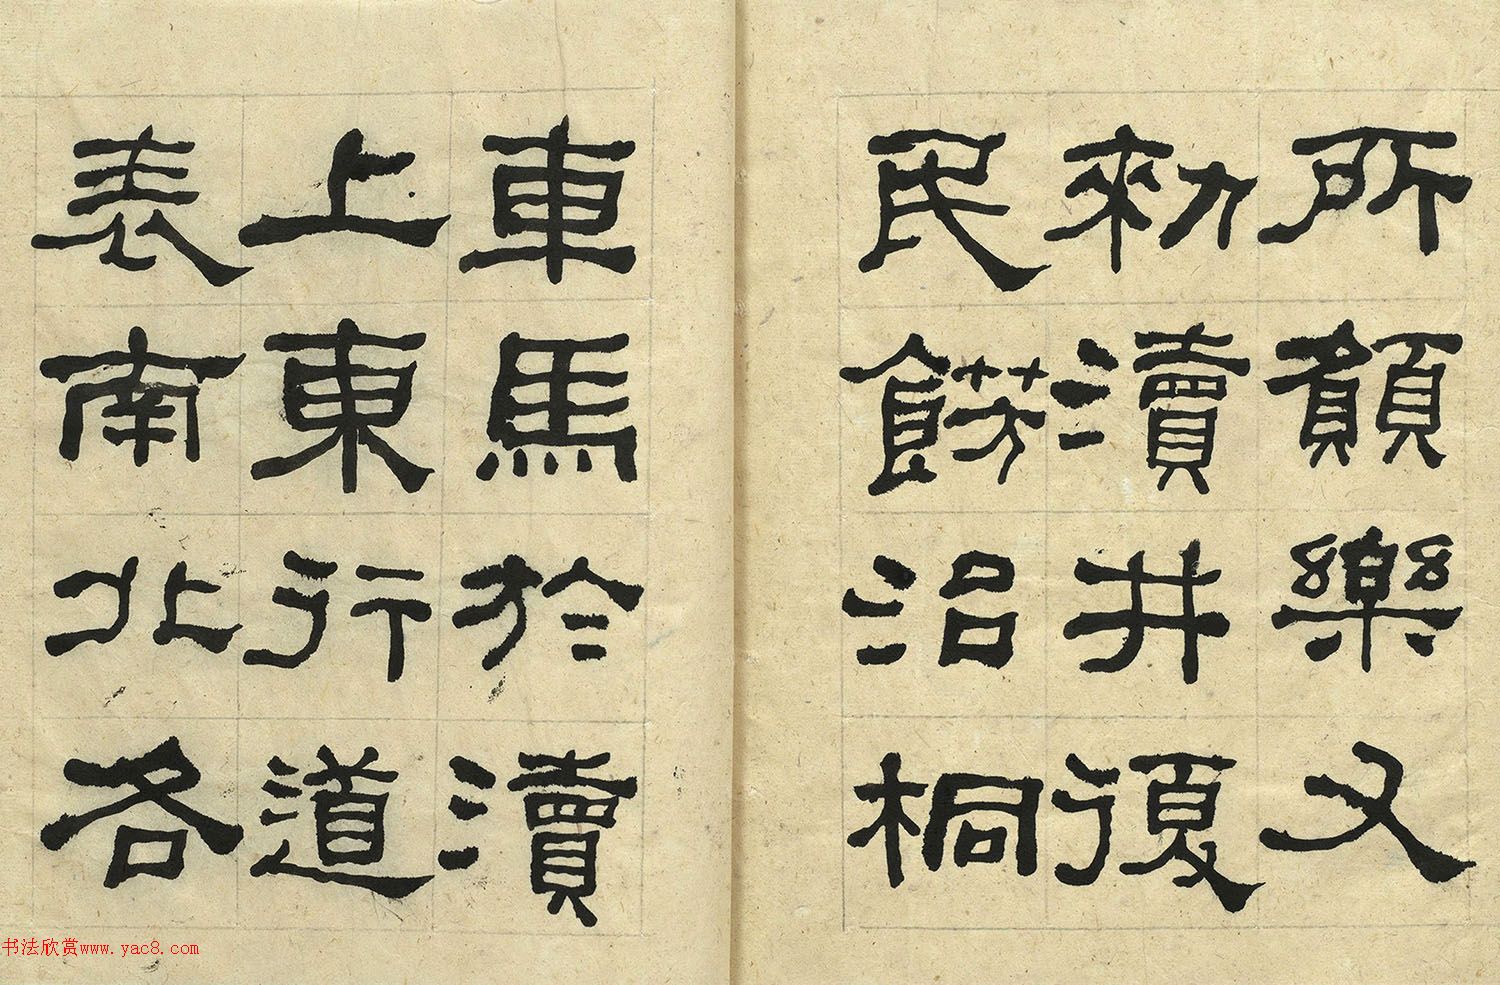 所願樂又
勑瀆井復
民餝治桐
車馬於瀆
上東行道
表南北各
书法欣赏www.yac8.com